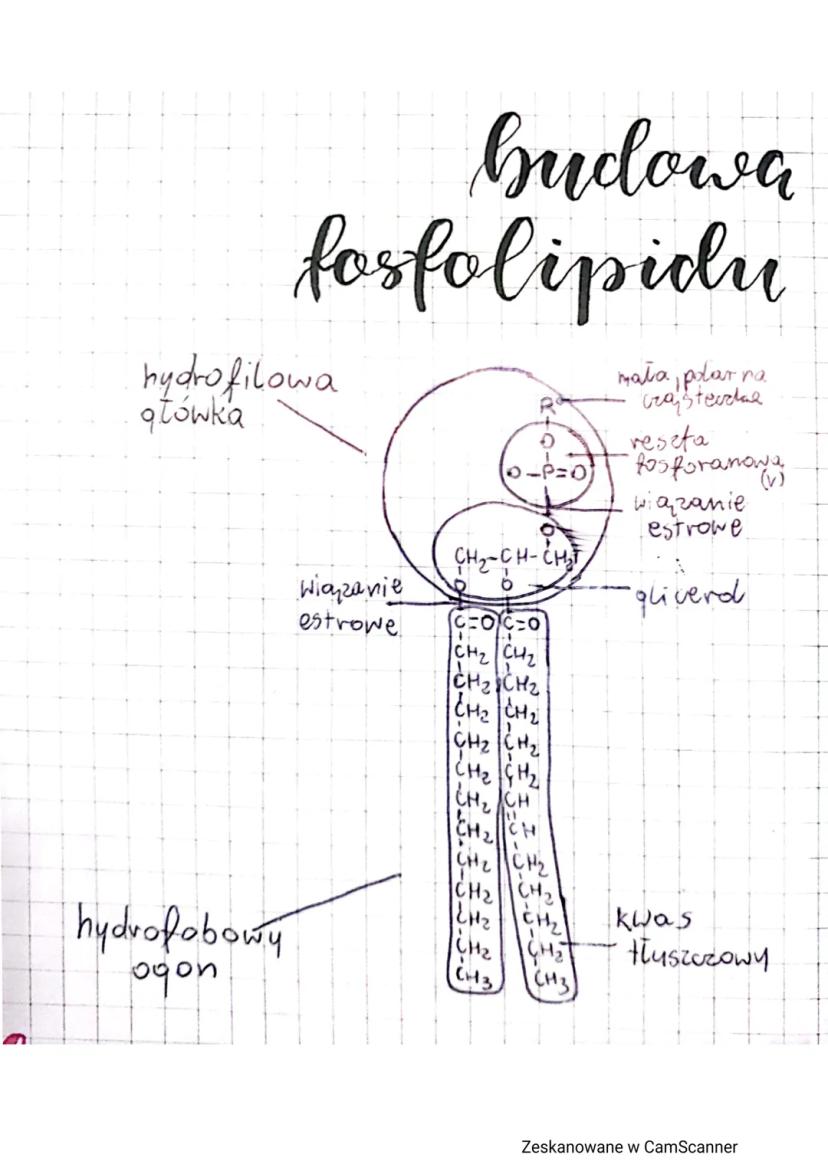 budowa
fosfolipidu
hydrofilowa
główka
mała, polarna
cząsteczka
reszta
fosforanowa
(V)
wiązanie
estrowe
glicerol
wiązanie
estrowe
R
O
O-P=O
O
CH2-CH-CH2
O O
C=O C=O
CH2 CH2
CH2 CH2
CH2 CH2
CH2 CH2
CH2 CH2
CH2 CH
CH2 CH
CH2 CH2
CH2 CH2
CH2 CH2
CH2 CH2
CH3 CH3
hydrofobowy
ogon
kwas
tłuszczowy
Zeskanowane w CamScanner